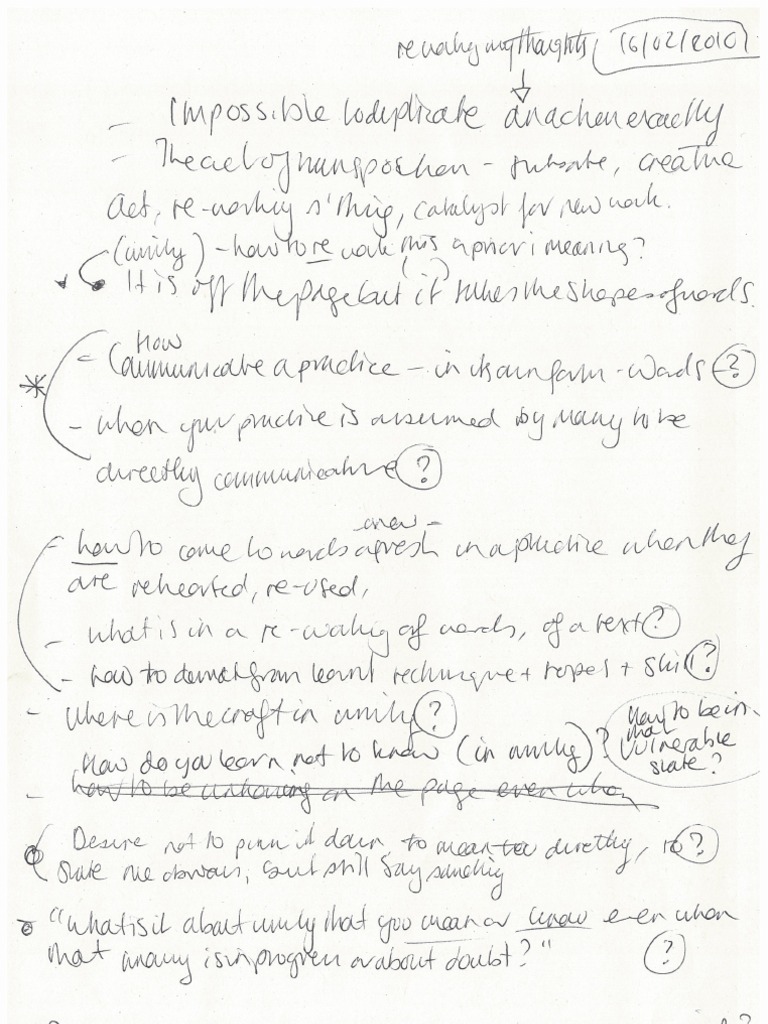 reworking my thoughts, 16/02/2010
- Impossible to duplicate an action exactly
- The act of transposition - , creative
act, re-working s'thing, catalyst for new work.
(writing) - how to re work this a priori meaning?
• It is off the page but (it) takes the shapes of words.
* - How communicate a practice - in its own form - words ?
- when your practice is assumed by many to be
directly communicative ?
anew -
- how to come to words afresh in a practice when they
are rehearsed, re-used,
- what is in a re-working of words, of a text ?
- how to from learnt technique + ropes + skill ?
- where is the craft in writing ?
How do you learn not to know (in writing)?
How to be in
that
vulnerable
state?
- how to be unknowing on the page even when
Desire not to pin it down, to mean too directly, to ?
state the obvious, but still say something
• "What is it about writing that you mean or know even when
that writing is in progress or about doubt?" ?